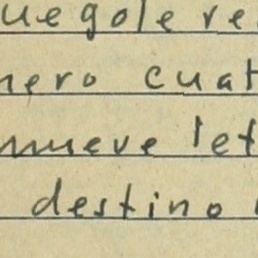 uegole re
nero cuat
nueve let
destino